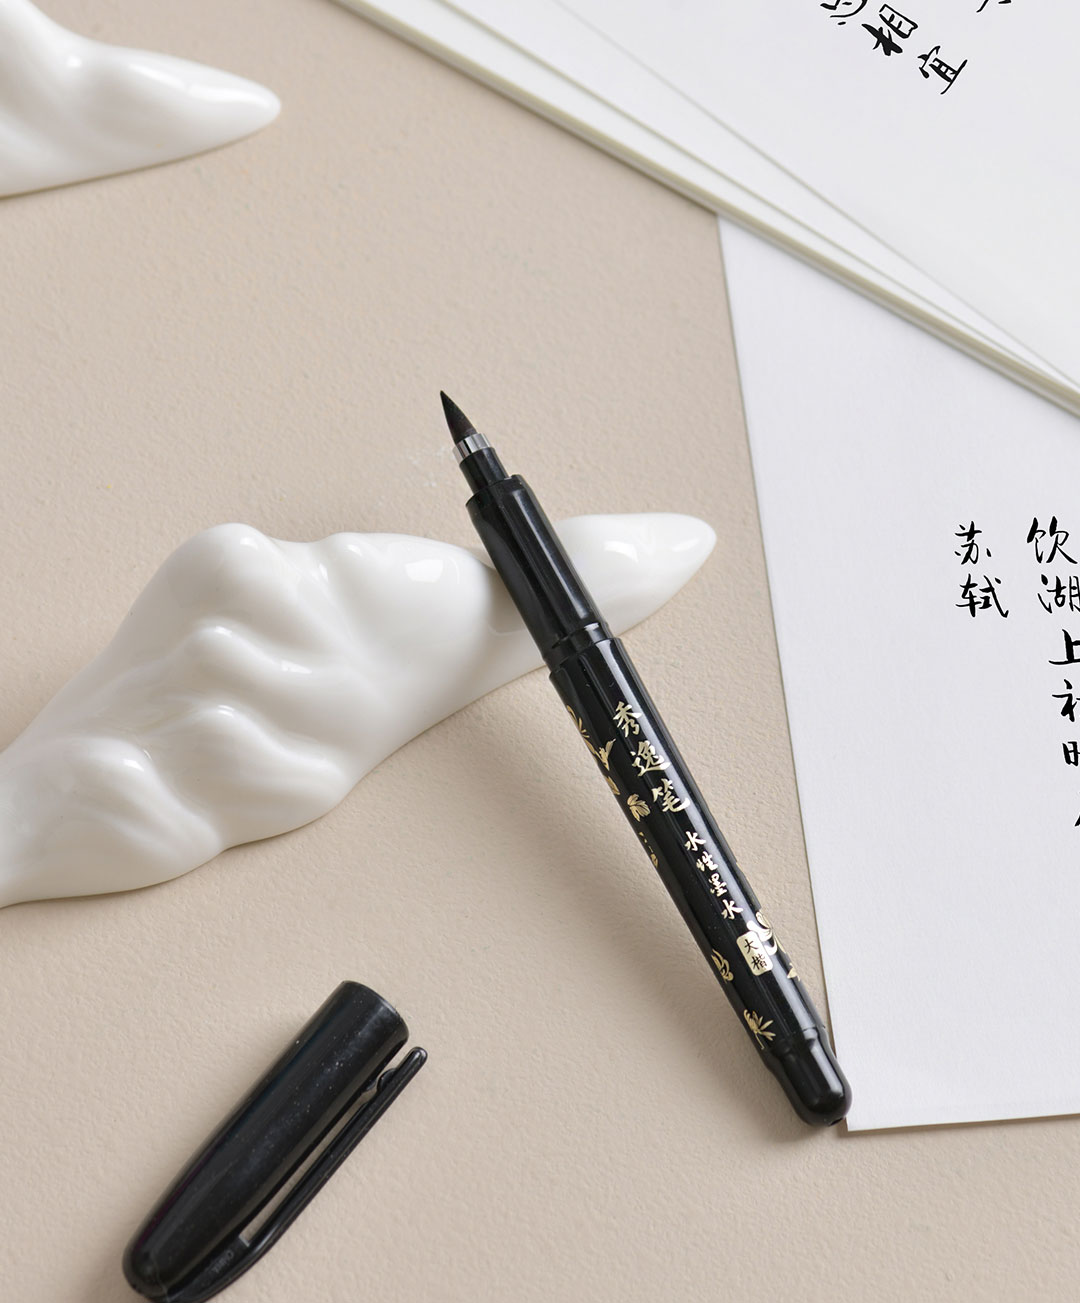 相宜
饮湖上
苏轼
秀逸笔
水性墨水
大楷